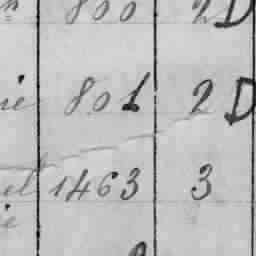 800 2D
ie 801 2D
el 1463 3
ie